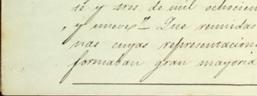 tó y tres de mil ochocien
y nueve Que reunidas
nas cuyas representacion
formaban gran mayoria